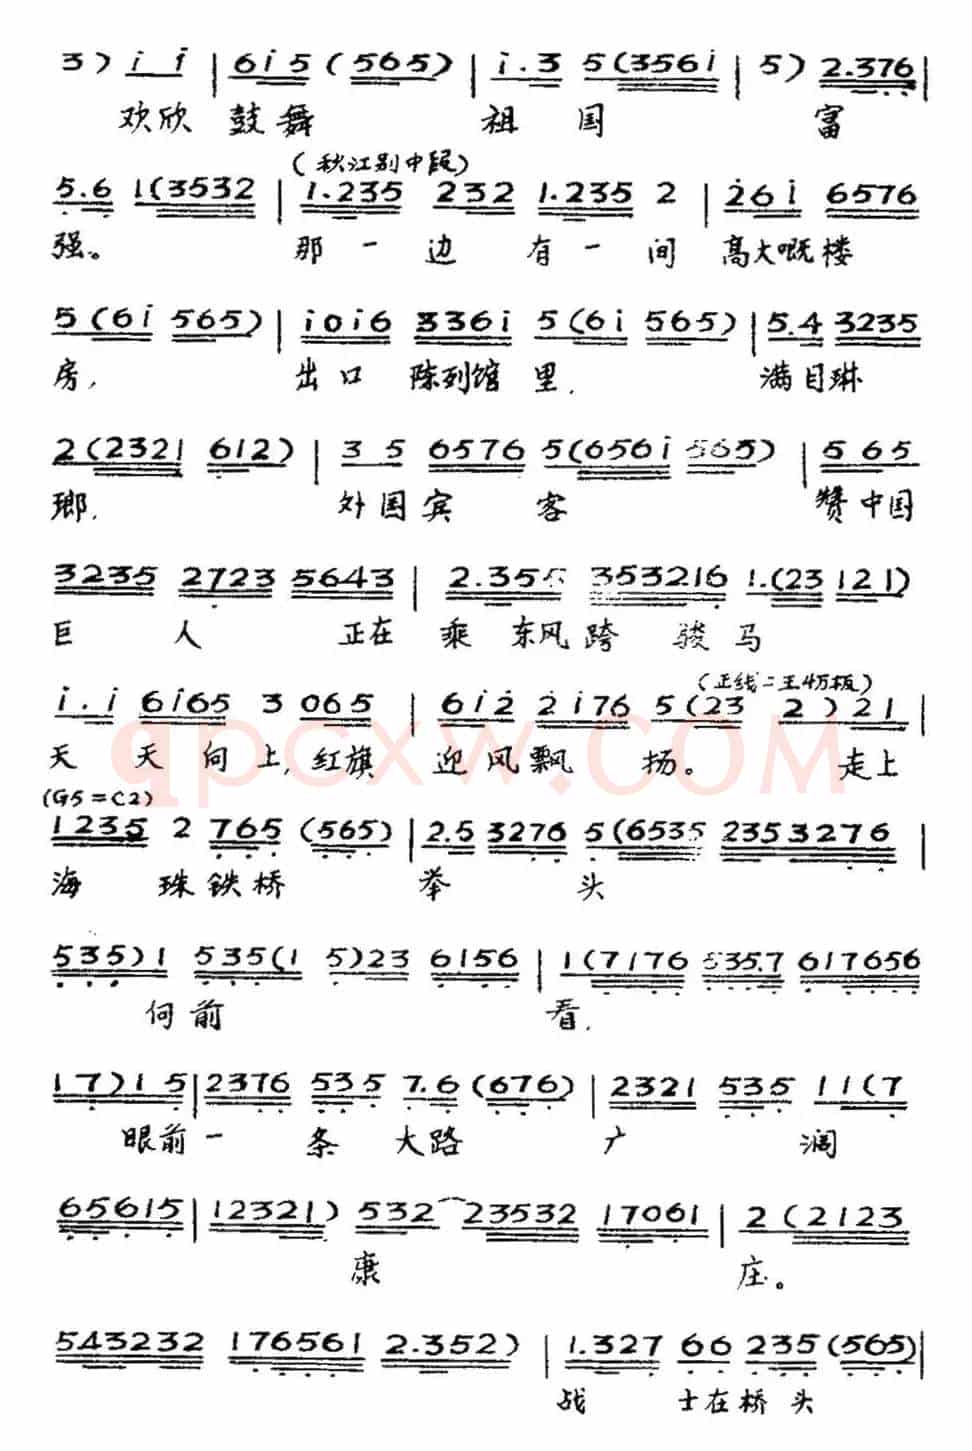 3) i i | 6i5 (565) | i.3 5(356i | 5) 2.376 |
欢欣鼓舞 祖国 富
(秋江别中段)
5.6 1(3532 | 1.235 232 1.235 2 | 26i 6576
强。 那一边有一间高大嘅楼
5(6i 565) | i0i6 336i 5(6i 565) | 5.4 3235
房, 出口陈列馆里, 满目琳
2(2321 612) | 3 5 6576 5(656i 565) | 5 65
瑯, 外国宾客 赞中国
3235 2723 5643 | 2.355 353216 1.(23 121)
巨人正在乘东风跨骏马
(正线二王4万板)
i.i 6i65 3 065 | 6i2 2i76 5(23 2) 21
天天向上,红旗迎风飘扬。 走上
(G5=C2)
1235 2 765 (565) | 2.5 3276 5(6535 2353276 |
海珠铁桥 举头
535) 1 535(1 5)23 6156 | 1(7176 535.7 617656
向前 看,
17) 15 | 2376 535 7.6 (676) | 2321 535 11(7
眼前一条大路广阔
65615 | 12321) 532 23532 17061 | 2(2123
康 庄。
543232 176561 2.352) | 1.327 66 235(565) |
战士在桥头
qpcxw.COM